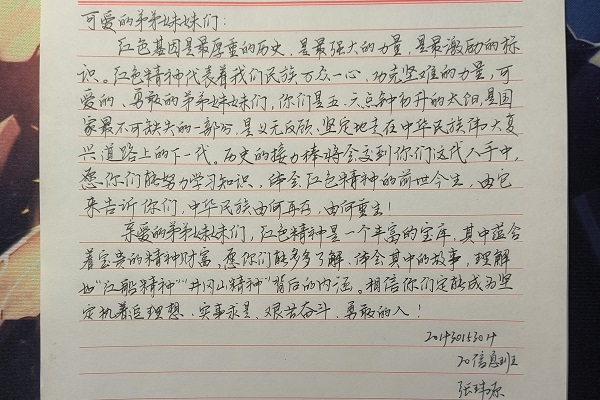 可爱的弟弟妹妹们：
红色基因是最厚重的历史、是最强大的力量，是最激励的标
识。红色精神代表着我们民族万众一心、功克坚难的力量，可
爱的、勇敢的弟弟妹妹们，你们是五、六点钟初升的太阳，是国
家最不可缺失的一部分，是义无反顾、坚定地走在中华民族伟大复
兴道路上的下一代。历史的接力棒将会交到你们这代人手中，
愿你们能努力学习知识，体会红色精神的前世今生，由它
来告诉你们，中华民族由何再存，由何重生！
亲爱的弟弟妹妹们，红色精神是一个丰富的宝库，其中蕴含
着宝贵的精神财富，愿你们能多多了解、体会其中的故事，理解
如“红船精神”“井冈山精神”背后的内涵。相信你们定能成为坚
定执着追理想、实事求是、艰苦奋斗、勇敢的人！
20信息班
张玮源